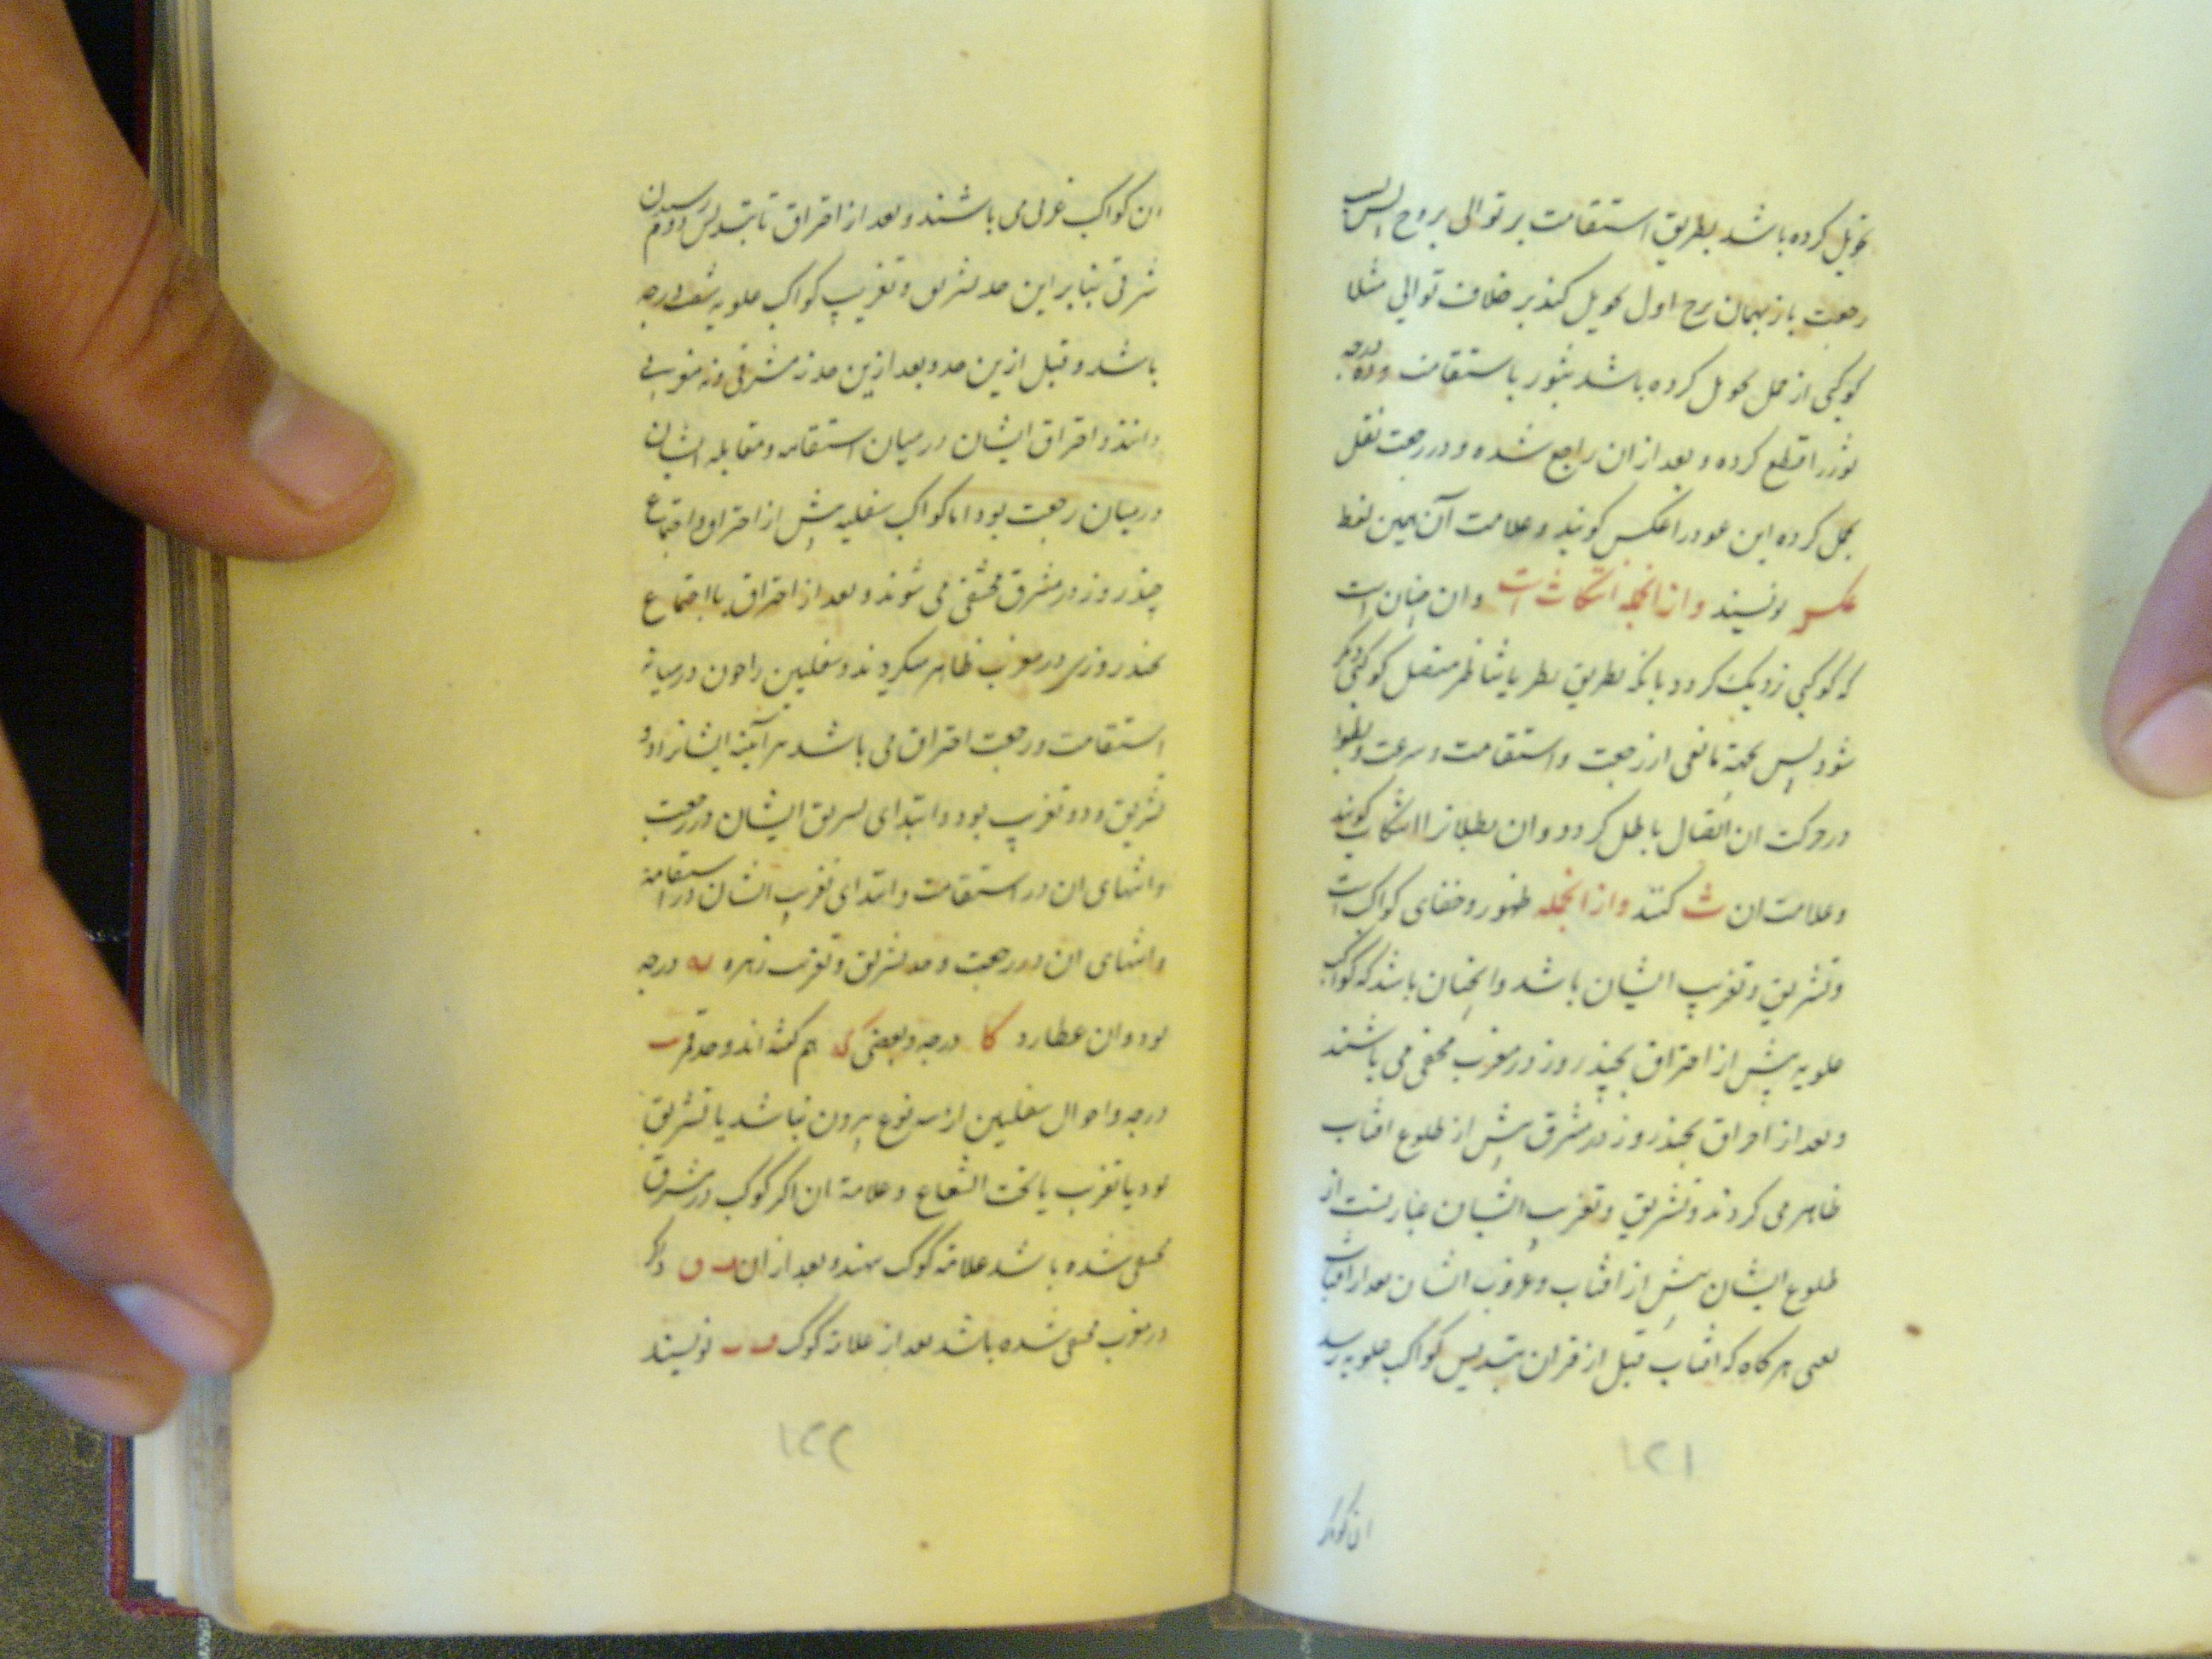 تحویل کرده باشد بطریق استقامت بر توالی بروج پس بسبب
رجعت باز بهمان برج اول تحویل کند بر خلاف توالی مثلا
کوکبی از حمل تحویل کرده باشد بثور باستقامت و ده درجه
ثور را قطع کرده و بعد از ان راجع شده و در رجعت نقل
بحمل کرده این عود را عکس کویند و علامت آن همین لفظ
عکس نویسند وازانجمله انتکاث است و ان چنان است
که کوکبی نزدیک کردد بانکه بطریق نظر یا تناظر متصل کوکبی دیکر
شود پس بجهة مانعی از رجعت و استقامت و سرعت و بطوء
در حرکت ان اتصال باطل کردد و ان بطلانرا انتکاث کویند
و علامت ان ث کنند وازانجمله ظهور و خفای کواکب است
و تشریق و تغریب ایشان باشد و اینچنان باشد که کواکب
علویه پیش از احتراق بچند روز در مغرب مخفی می باشند
و بعد از احراق بچند روز در مشرق پیش از طلوع افتاب
ظاهر می کردند و تشریق و تغریب ایشان عبارتست از
طلوع ایشان پیش از افتاب و غروب ایشان بعد از افتاب
یعنی هرکاه که افتاب قبل از قران بتسدیس کواکب علویه رسد
۱۲۱
ان کواکب
ان کواکب غربی می باشند و بعد از احتراق تا بتسدیس دوم رسیدن
شرقی بنابراین حد تشریق و تغریب کواکب علویه شصت درجه
باشد و قبل ازین حد و بعد ازین حد نه مشرقی و نه مغربی
دانند و احتراق ایشان در میان استقامه و مقابله ایشان
در میان رجعت بود اما کواکب سفلیه پیش از احتراق و اجتماع
چند روز در مشرق مختفی می شوند و بعد از احتراق یا اجتماع
بچند روزی در مغرب ظاهر میکردند و سفلیین را چون در میانه
استقامت و رجعت احتراق می باشد هر آینه ایشانرا دو
تشریق و دو تغریب بود و ابتدای تشریق ایشان در رجعت
و انتهای ان در استقامت و ابتدای تغریب ایشان در استقامة
و انتهای ان در رجعت و حد تشریق و تغریب زهره مه درجه
بود و ان عطارد کا درجه و بعضی کو هم کفته اند و حد قمر ب
درجه و احوال سفلیین از سه نوع بیرون نباشد یا تشریق
بود یا تغریب یا تحت الشعاع و علامة ان اکر کوکب در مشرق
مختفی شده باشد علامة کوکب بنهند و بعد از ان ف واکر
در مغرب مختفی شده باشد بعد از علامة کوکب نویسند
۱۲۲